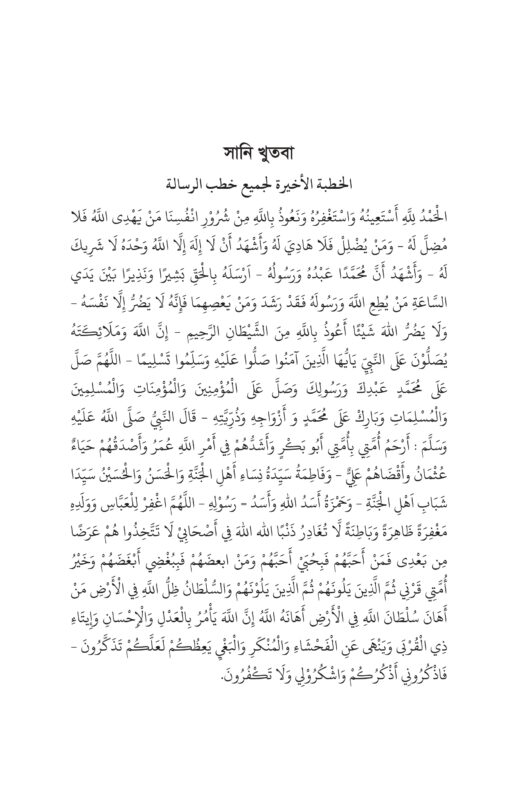 সানি খুতবা
الخطبة الأخيرة لجميع خطب الرسالة
الْحَمْدُ لِلَّهِ أَسْتَعِينُهُ وَاسْتَغْفِرُهُ وَنَعُوذُ بِاللَّهِ مِنْ شُرُوْرِ انْفُسِنَا مَنْ يَهْدِى اللَّهُ فَلا
مُضِلَّ لَهُ - وَمَنْ يُضْلِلْ فَلَا هَادِيَ لَهُ وَأَشْهَدُ أَنْ لَا إِلَهَ إِلَّا اللَّهُ وَحْدَهُ لَا شَرِيكَ
لَهُ - وَأَشْهَدُ أَنَّ مُحَمَّدًا عَبْدُهُ وَرَسُولُهُ - اَرْسَلَهُ بِالْحَقِّ بَشِيرًا وَنَذِيرًا بَيْنَ يَدَيِ
السَّاعَةِ مَنْ يُطِعِ اللَّهَ وَرَسُولَهُ فَقَدْ رَشَدَ وَمَنْ يَعْصِهِمَا فَإِنَّهُ لَا يَضُرُّ إِلَّا نَفْسَهُ -
وَلَا يَضُرُّ اللهَ شَيْئًا أَعُوذُ بِاللَّهِ مِنَ الشَّيْطَانِ الرَّجِيمِ - إِنَّ اللَّهَ وَمَلَائِكَتَهُ
يُصَلُّوْنَ عَلَى النَّبِيِّ يَايُّهَا الَّذِينَ آمَنُوا صَلُّوا عَلَيْهِ وَسَلِّمُوا تَسْلِيمًا - اللَّهُمَّ صَلِّ
عَلَى مُحَمَّدٍ عَبْدِكَ وَرَسُولِكَ وَصَلِّ عَلَى الْمُؤْمِنِينَ وَالْمُؤْمِنَاتِ وَالْمُسْلِمِينَ
وَالْمُسْلِمَاتِ وَبَارِكْ عَلَى مُحَمَّدٍ وَ أَزْوَاجِهِ وَذُرِّيَّتِهِ - قَالَ النَّبِيُّ صَلَّى اللَّهُ عَلَيْهِ
وَسَلَّمَ : أَرْحَمُ أُمَّتِي بِأُمَّتِي أَبُو بَكْرٍ وَأَشَدُّهُمْ فِي أَمْرِ اللَّهِ عُمَرُ وَأَصْدَقُهُمْ حَيَاءً
عُثْمَانُ وأَقْضَاهُمْ عَلِيٌّ - وَفَاطِمَةُ سَيِّدَةُ نِسَاءِ أَهْلِ الْجَنَّةِ وَالْحَسَنُ وَالْحُسَيْنُ سَيِّدَا
شَبَابِ اَهْلِ الْجَنَّةِ - وَحَمْزَةُ أَسَدُ اللهِ وَأَسَدُ - رَسُوْلِهِ - اللَّهُمَّ اغْفِرْ لِلْعَبَّاسِ وَوَلَدِهِ
مَغْفِرَةً ظَاهِرَةً وَبَاطِنَةً لَّا تُغَادِرُ ذَنْبًا الله اللهَ فِي أَصْحَابِيْ لَا تَتَّخِذُوا هُمْ عَرَضًا
مِن بَعْدِى فَمَنْ أَحَبَّهُمْ فَبِحُبِّيْ أَحَبَّهُمْ وَمَنْ ابغضَهُمْ فَبِبُغْضِي أَبْغَضَهُمْ وَخَيْرُ
أُمَّتِي قَرْنِي ثُمَّ الَّذِينَ يَلُونَهُمْ ثُمَّ الَّذِينَ يَلُوْنَهُمْ وَالسُّلْطَانُ ظِلُّ اللَّهِ فِي الْأَرْضِ مَنْ
أَهَانَ سُلْطَانَ اللَّهِ فِي الْأَرْضِ أَهَانَهُ اللَّهُ إِنَّ اللَّهَ يَأْمُرُ بِالْعَدْلِ وَالْإِحْسَانِ وَإِيتَاءِ
ذِي الْقُرْبَى وَيَنْهَى عَنِ الْفَحْشَاءِ وَالْمُنْكَرِ وَالْبَغْيِ يَعِظُكُمْ لَعَلَّكُمْ تَذَكَّرُونَ -
فَاذْكُرُونِي أَذْكُرْكُمْ وَاشْكُرُوْلِي وَلَا تَكْفُرُونَ.